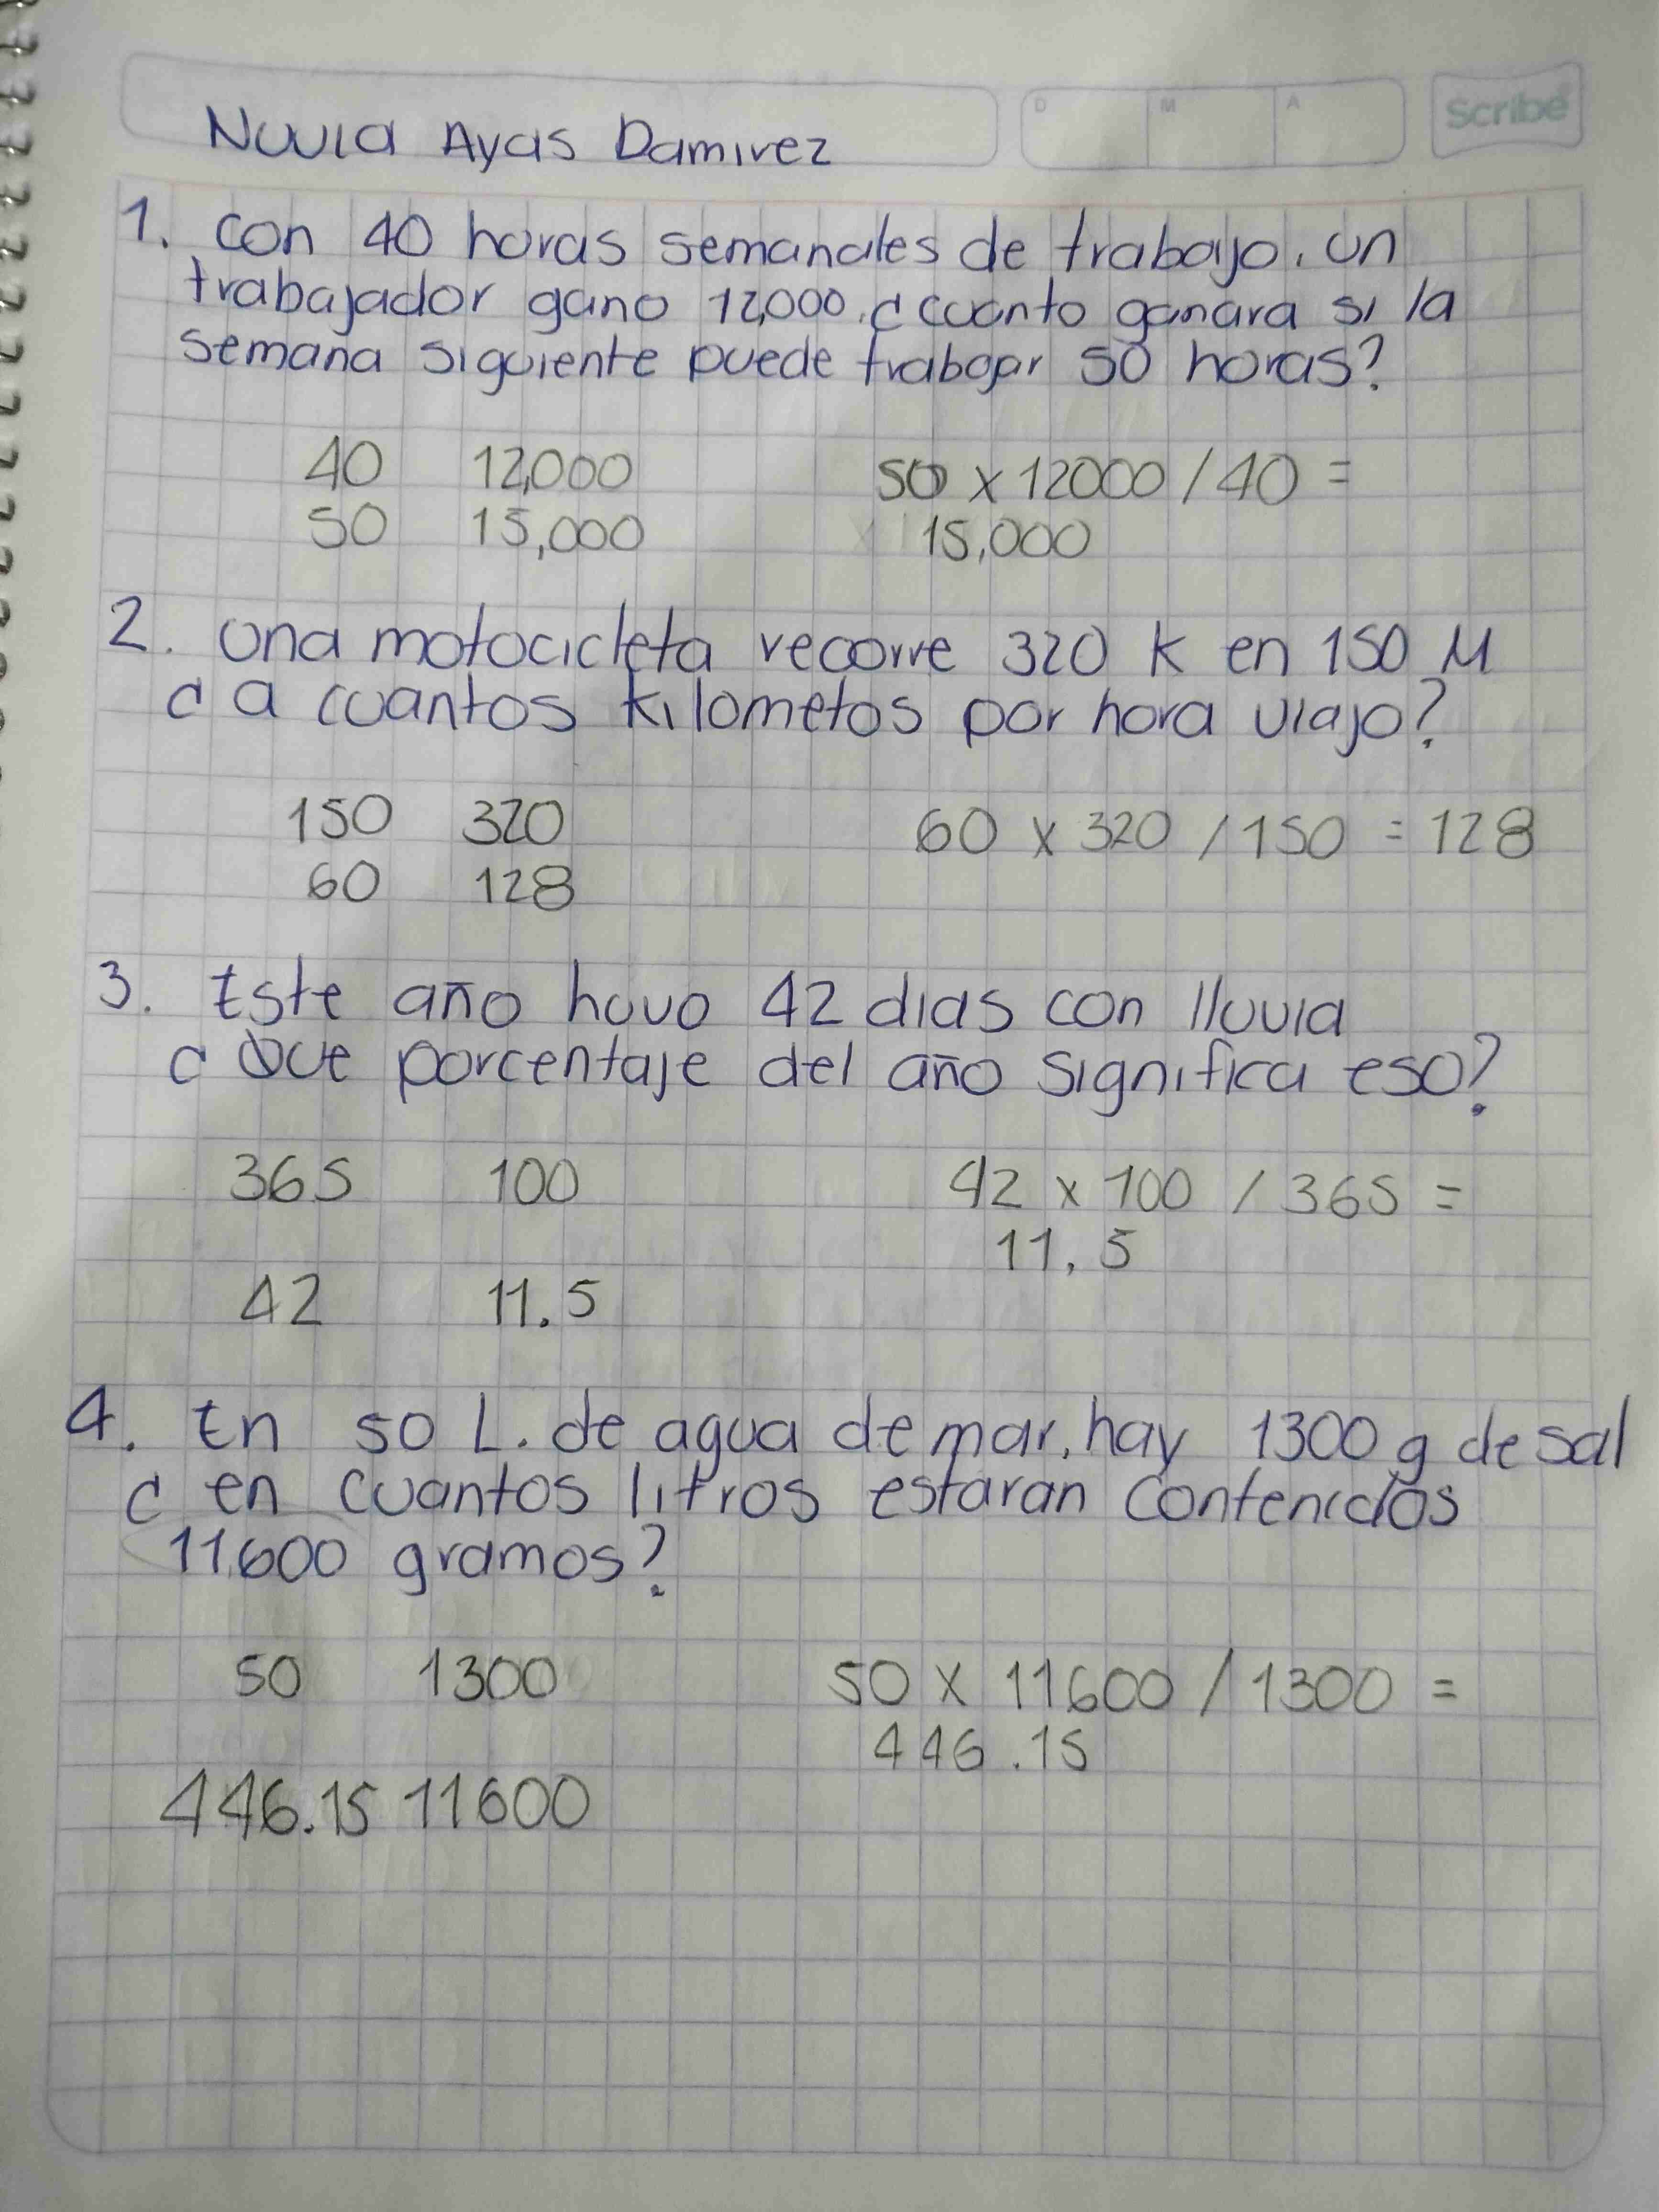 D M A Scribe
Nuvia Ayas Damirez
1. Con 40 horas semanales de trabajo, un
trabajador gano 12,000, ¿cuanto ganara si la
semana siguiente puede trabajar 50 horas?
40 12,000 50 x 12000 / 40 =
50 15,000 15,000
2. Una motocicleta recorre 320 K en 150 M
¿ a cuantos kilometos por hora viajo?
150 320 60 x 320 / 150 = 128
60 128
3. Este año huvo 42 dias con lluvia
¿ Que porcentaje del año significa eso?
365 100 42 x 100 / 365 =
11.5
42 11.5
4. En 50 L. de agua de mar, hay 1300 g de sal
¿ en cuantos litros estaran contenidos
11.600 gramos?
50 1300 50 x 11600 / 1300 =
446.15
446.15 11600